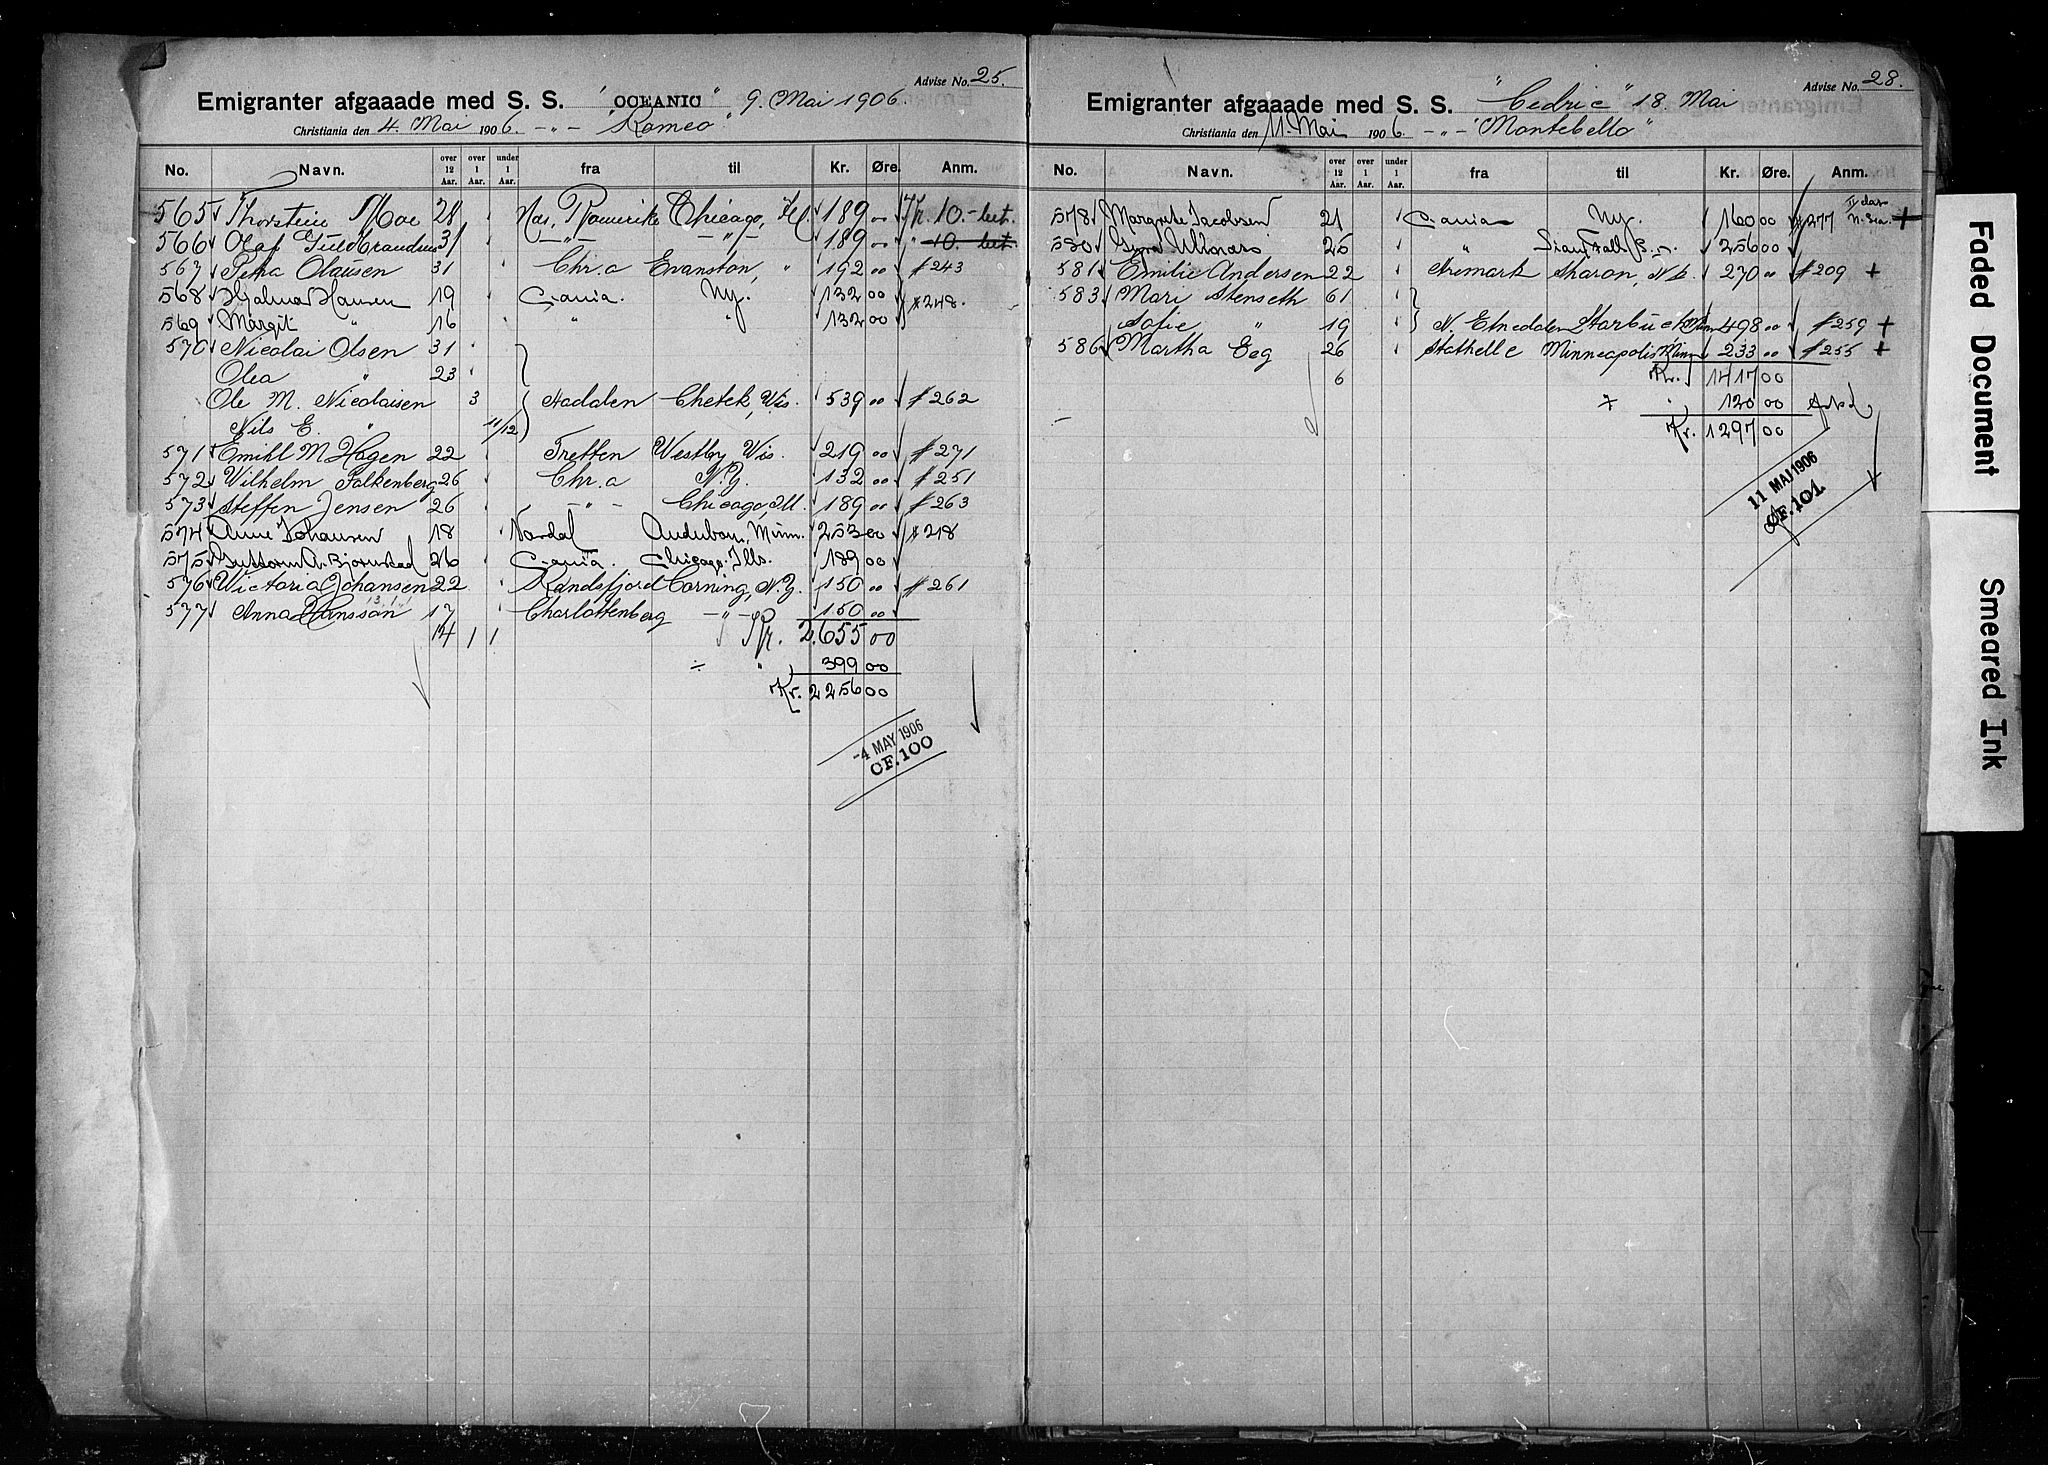 Advise No. 25.
Emigranter afgaaade med S. S. "OCEANIC" 9. Mai 1906.
Christiania den 4. Mai 1906. -„- "Romeo".
No. Navn. over 12 Aar. over 1 Aar. under 1 Aar. fra til Kr. Øre. Anm.
565 Thorstein Moe 28 Nas. Romerike Chicago, Ill. 189 00 Kr. 10.- bet.
566 Olaf Guldbrandsen 31 -„- -„- 189 00 " 10.- bet.
567 Petra Olausen 31 Chr.a Evanston, " 192 00 # 243
568 Hjalmar Hansen 19 C-ania. Ny. 132 00 # 248.
569 Margit " 16 " " 132 00
570 Nicolai Olsen 31
Olea " 23
Ole M. Nicolaisen 3 Aadalen Chetek, Wis. 539 00 # 262
Nils E. " 11/12
571 Emihl M. Hagen 22 Tretten Westby, Wis. 219 00 # 271
572 Wilhelm Falkenberg 26 Chr.a N.Y. 132 00 # 251
573 Steffen Jensen 26 -„- Chicago, Ill. 189 00 # 263
574 Anne Johansen 18 Nordal Audubon, Minn. 253 00 # 218
575 Guttorm A. Bjørnstad 26 C-ania. Chicago. Ills. 189 00
576 Victoria Johansen 22 Randsfjord Corning, N.Y. 150 00 # 261
577 Anna Hansson 17 Charlottenberg -„- 150 00
14 1 1 Kr. 2.655 00
÷ " 399 00
Kr. 2256 00
-4 MAY 1906
CF. 100
Advise No. 28.
Emigranter afgaaade med S. S. "Cedric" 18. Mai
Christiania den 11. Mai 1906. -„- "Montebello"
No. Navn. over 12 Aar. over 1 Aar. under 1 Aar. fra til Kr. Øre. Anm.
578 Margrete Jacobsen 21 C-ania Ny. 160 00 # 277 +
580 26 " Sioux Falls S. D. 256 00
581 Emilie Andersen 22 Aremark Sharon, N.D. 270 00 # 209 +
583 Mari Stenseth 61
Sofie " 19 N. Etnedalen Starbuck Minn 498 00 # 259 +
586 Martha Eeg 26 Stathelle Minneapolis Minn 233 00 # 255 +
6 Kr. 1417 00
÷ " 120 00
Kr. 1297 00
11 MAI 1906
CF. 101.
Faded Document
Smeared Ink